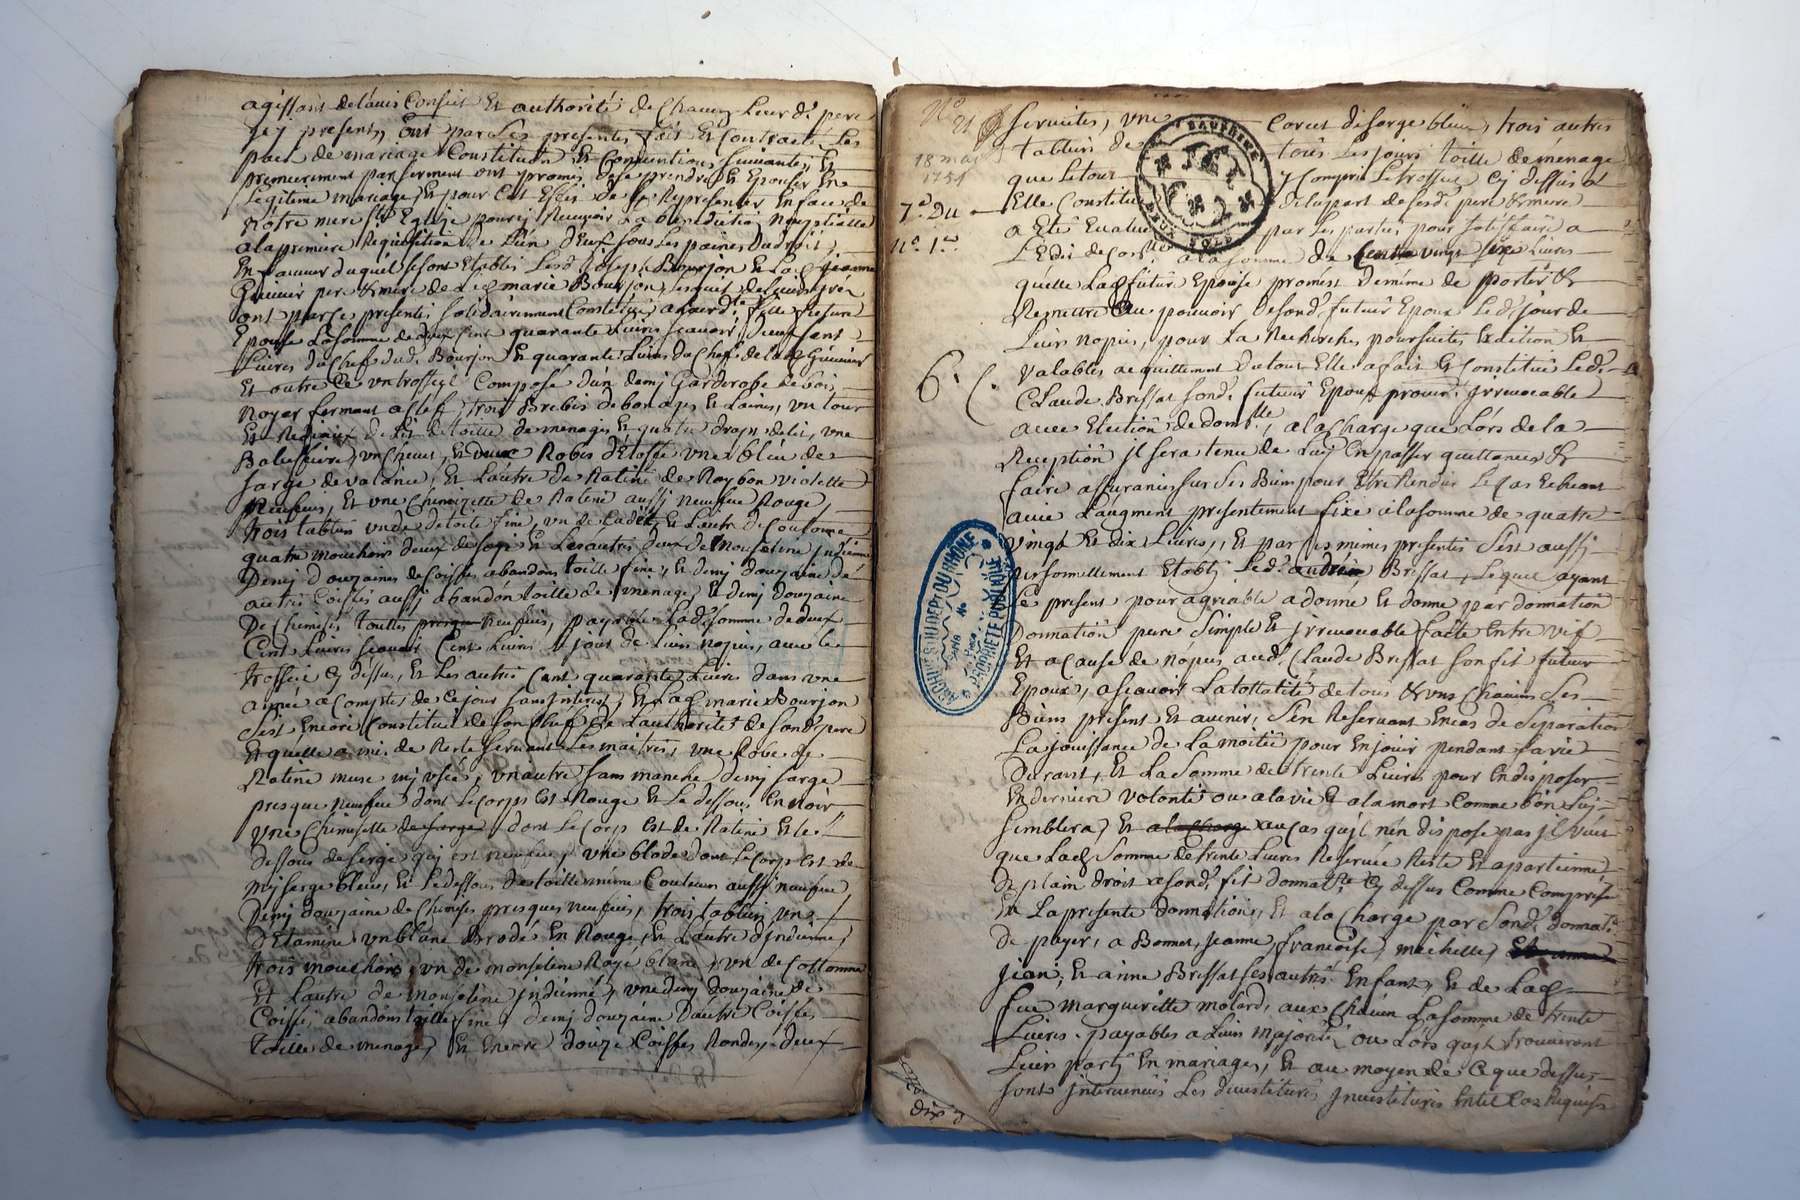 agissant de lavis Conseil Et authorité de Chacun Leur dt pere
jcy presents, Ont par Les presentes fait Et Contracté Les
pact de mariage Constitution Et Conventions suivantes, Et
premierement par serment ont promis de se prendre Et Epouser En
Legitime mariage, Et pour Cet Effet de se Representer En face de
Notre mere Ste Eglise pour y Recevoir La benediction Nuptialle
a la premiere Requisition de L'un d'Eux sous Les paines Du droit
En faveur duquel se sont Etablis Lesd Joseph Bourjon Et La Jeanne
pere & mere de Lad marie Bourjon, Lesquels de leurs grés
ont par se presentes solidairement Constitué a leurd te fille future
Epouse La somme de deux Cent quarante Livres scavoir deux Cent
Livres du Chef dud Bourjon Et quarante Livres du Chef de lad
Et outre Ce un trossel Composé d'un demy Garderobe de bois
Noyer fermant a Clef, trois Brebis de bon age Et Laines, un tour
Et de Lit de toille de menage Et quatre draps de lit, une
un Chevet, Et deux Robes d'Etoffe une bleu de
sarge de valance, Et L'autre de Ratine de Roybon violette
Neufves, Et une Chemizette de Ratine aussi Neufve Rouge,
trois tablier un de toile fine, un de Cadis, Et L'autre de Cottonne
quatre mouchoirs deux de soye Et Les autres deux de Mousseline Indienne
Demy douzaines de Coiffes abandons toille fine, Et demy douzaine de
autres Coiffes aussi abandon toille de menage, Et demy douzaine
De Chemises touttes presque Neufves, payable Lad somme de deux
Cent Livres scavoir Cent Livres Le jour de Leurs nopces, avec le
trossel Cy dessus, Et Les autres Cent quarante Livres dans une
année a Comptes de Ce jour sans interest, Et Lad marie Bourjon
s'est Encore Constituée de son Chef de L'authorité de sond pere
Et quelle a mis de Reste servant Les maitres, une Robe de
Ratine muse my usée, un autre sans manche demy sarge
presque neufve dont Le Corps Est Rouge Et Le dessous En noir
une Chemisette de sarge, dont Le Corps Est de Ratine Et le
dessous de serge qui est neufve, une blode dont Le Corps Est de
my serge bleue, Et Le dessous de toille même Couleur aussi neufve
Demy douzaine de Chemises presques neufves, trois tabliers un
d'Etamine un blanc Brodé En Rouge, Et L'autre d'Indienne,
trois mouchoirs, un de monseline Rayé blanc, un de Cottonne
Et L'autre de Monseline jndienne, une demy douzaine de
Coiffes abandons toille fine, demy douzaine d'autre Coiffes
toille de menage, Et Encore douze Coiffes Rondes, deux
No 21
18 mai
1751
7e Du
No 1er
6. C.
serviettes, une Corcet de serge bleue, trois autres
tabliers de tous Les jours toille de menage
que Le tout y Compris Le trossel Cy dessus a
Elle Constitué de la part de sesdt pere & mere
a Eté Evalué par Les parties pour satisfaire a
L'Edit de a la somme de Cent vingt six Livres
quelle Lad future Epouse promest de même de porter &
Remettre Au pouvoir de sond futur Epoux Le dt jour de
Leurs nopces, pour La Recherches poursuites Exaction Et
valables acquittement Du tout Elle a fait Et Constitué Led
Claude Brissat sond futur Epoux procur irrevocable
avec Election de domlle, a la Charge que L'ors de la
Reception jl sera tenu de Luy En passer quittances &
faire assurances sur Ses Biens pour Etre Rendus Le Cas Echeant
avec L'augment presentement fixé a la somme de quatre
vingt Et dix Livres, Et par ses mêmes presentes s'est aussi
personnellement Etably Led Brissat, Lequel ayant
Le present pour agreable a donné Et donne par donnation
Donnation pure Simple Et jrrevocable faitte Entre vif
Et a Cause de nopces aud Claude Brissat son fil futur
Epoux, a scavoir La tottallité de tous & uns Chacuns Ses
Biens present Et avenir, s'en Reservant En Cas de Separation
La jouissance de La moitié pour En jouir pendant sa vie
Durant, Et La Somme de trente Livres pour En disposer
En derniere volonté ou a la vie Et a la mort Comme bon Luy
semblera, Et a la Charge au Cas qu'jl n'en dispose pas jl veut
que Lad Somme de trente Livres Reservée Reste Et apartienne
de plain droit a sond fil donnatre Cy dessus Comme Comprise
En La presente donnation, Et a la Charge par Sond donnatre
de payer, a Bonnet, Jeanne, francoise, michelle,
jean, Et anne Brissat ses autres Enfant, Et de Lad
feue margueritte molard, aux Chacun La somme de trente
Livres payables a Leurs majorité ou L'ors quils trouveront
Leur party En mariages, Et au moyen de Ce que dessus
sont jntervenues Les divestitures jnvestitures En tel Cas Requises
DAUPHINE
DEUX SOLS
ARCHIVES DU DEPT DU RHONE
PROPRIETE PUBLIQUE
dix